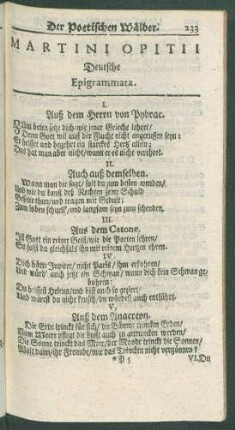 Der Poetischen Wälder. 233
MARTINI OPITII
Deutsche
Epigrammata.
I.
Auß dem Herrn von Pybrac.
Gott wil nicht angeruffen seyn:
Er hilffet und begehrt ein starckes Hertz allein:
Das hat man aber nicht/wann er es nicht verehret.
II.
Auch auß demselben.
Wann man die sagt/ solt du zum besten wenden/
und tragen mit Gedult:
Zum loben schnell/ und langsam seyn zum schenden.
III.
Aus dem Catone.
Ist Gott ein reiner Geist/ wie die Poeten lehren/
So mit reinem Hertzen ehren.
IV.
Dich hätte Jupiter/ nicht Paris/ ihm erkohren/
Und würd' auch jetzt ein Schwan/ wann dich kein Schwan ge-
bohren:
Du heissest Helena/ und bist auch so geziert/
Und wärest du nicht keusch/ du würdest auch entführt.
V.
Auß dem Anacreon.
Die Erde trinckt für sich/ die Bäume trincken Erden/
Vom Meere pflegt die Lufft auch zu getruncken werden/
Die Sonne trinckt das Meer/ der Monde trinckt die Sonnen/
Wolt dann/ ihr Freunde/ mir das Trincken nicht vergönnen?
P 5 VI. Du